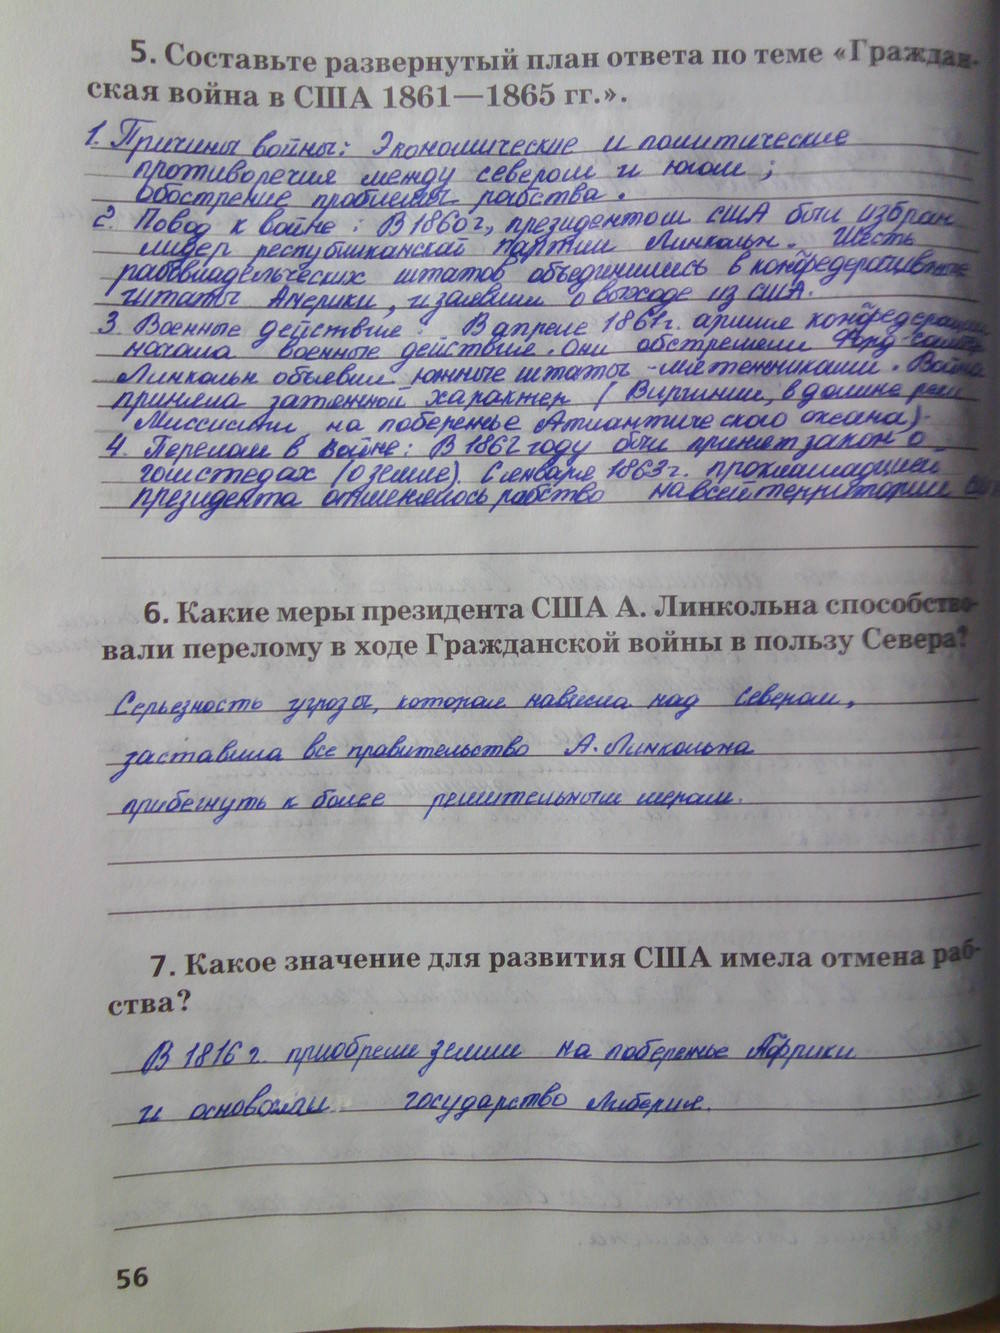 5. Составьте развернутый план ответа по теме «Граждан-
ская война в США 1861—1865 гг.».
1. Причины войны: Экономические и политические
противоречия между севером и югом;
обострение проблемы рабства.
2. Повод к войне: В 1860 г., президентом США был избран
лидер республиканской партии Линкольн. Шесть
рабовладельческих штатов объединились в конфедеративные
штаты Америки, и заявили о выходе из США.
3. Военные действия: В апреле 1861 г. армия конфедерации
начала военные действия. Они обстреляли Форд-Самтер
Линкольн объявил южные штаты - мятежниками. Война
приняла затяжной характер (Виргинии, в долине реки
Миссисипи, на побережье Атлантического океана).
4. Перелом в войне: В 1862 году был принят закон о
гомстедах (о земле). С января 1863 г. прокламацией
президента отменялось рабство на всей территории США
6. Какие меры президента США А. Линкольна способство-
вали перелому в ходе Гражданской войны в пользу Севера?
Серьезность угрозы, которая нависла над Севером,
заставила все правительство А. Линкольна
прибегнуть к более решительным мерам.
7. Какое значение для развития США имела отмена раб-
ства?
В 1816 г. приобрели земли на побережье Африки
и основали государство Либерия.
56